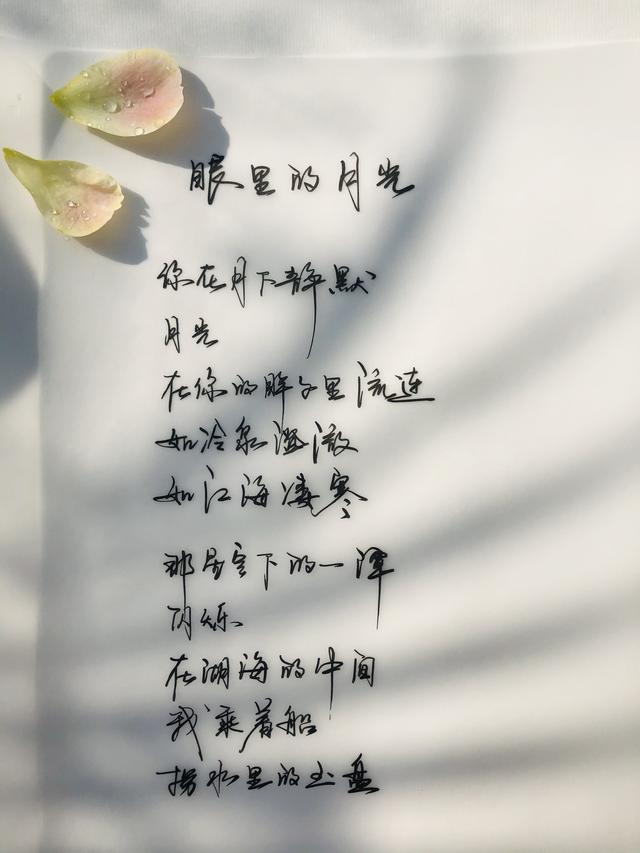 眼里的月光
你在月下静默
月光
在你的眸子里流连
如冷泉澄澈
如江海凄寒
那星空下的一潭
闪烁
在湖海的中间
我乘着船
捞水里的玉盘